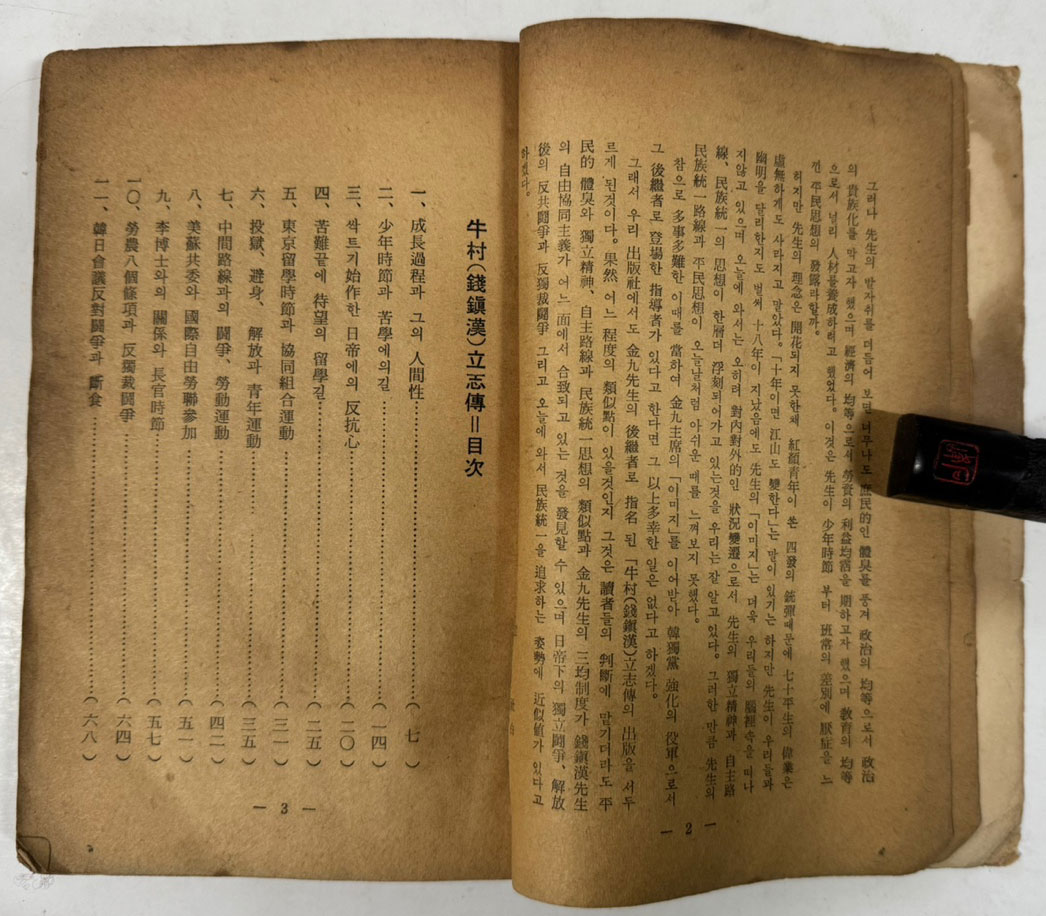 그러나 先生의 발자취를 더듬어 보면 너무나도 庶民的인 體臭를 풍겨 政治의 均等으로서 政治
의 貴族化를 막고자 했으며 經濟의 均等으로서 勞資의 利益均霑을 期하고자 했으며 敎育의 均等
으로서 널리 人材를 養成하려고 했었다。이것은 先生이 少年時節 부터 班常의 差別에 厭症을 느
낀 平民思想의 發露라할까。
허지만 先生의 理念은 開花되지 못한채 紅顔靑年이 쏜 四發의 銃彈때문에 七十平生의 偉業은
虛無하게도 사라지고 말았다。「十年이면 江山도 變한다」는 말이 있기는 하지만 先生이 우리들과
幽明을 달리한지도 벌써 十八年이 지났음에도 先生의 「이미지」는 더욱 우리들의 腦裡속을 떠나
지않고 있으며 오늘에 와서는 오히려 對內對外的인 狀況變遷으로서 先生의 獨立精神과 自主路
線、民族統一의 思想이 한層더 浮刻되어가고 있는것을 우리는 잘 알고 있다。그러한 만큼 先生의
民族統一路線과 平民思想이 오늘날처럼 아쉬운 때를 느껴보지 못했다。
참으로 多事多難한 이때를 當하여 金九主席의 「이미지」를 이어받아 韓獨黨 強化의 役軍으로서
그 後繼者로 登場한 指導者가 있다고 한다면 그 以上多幸한 일은 없다고 하겠다。
그래서 우리 出版社에서도 金九先生의 後繼者로 指名 된 「牛村(錢鎭漢)立志傳의 出版을 서두
르게 된것이다。果然 어느 程度의 類似點이 있을것인지 그것은 讀者들의 判斷에 맡기더라도 平
民的 體臭와 獨立精神、自主路線과 民族統一思想의 類似點과 金九先生의 三均制度가 錢鎭漢先生
의 自由協同主義가 어느 面에서 合致되고 있는 것을 發見할 수 있으며 日帝下의 獨立鬪爭、解放
後의 反共鬪爭과 反獨裁鬪爭 그리고 오늘에 와서 民族統一을 追求하는 姿勢에 近似値가 있다고
하겠다。
— 2 —
牛村(錢鎭漢)立志傳＝目次
一、成長過程과 그의 人間性……………(七)
二、少年時節과 苦學에의길……………(一四)
三、싹트기始作한 日帝에의 反抗心……………(二〇)
四、苦難끝에 待望의 留學길……………(二五)
五、東京留學時節과 協同組合運動……………(三一)
六、投獄、避身、解放과 靑年運動……………(三五)
七、中間路線과의 鬪爭、勞動運動……………(四二)
八、美蘇共委와 國際自由勞聯參加……………(五一)
九、李博士와의 關係와 長官時節……………(五七)
一〇、勞農八個條項과 反獨裁鬪爭……………(六四)
一一、韓日會議反對鬪爭과 斷食……………(六八)
— 3 —